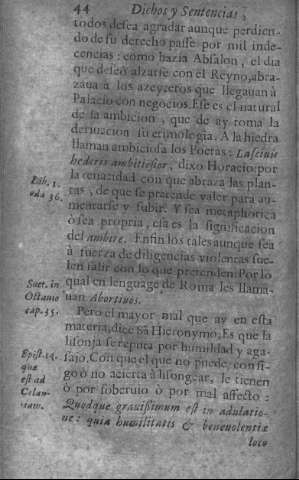 44 Dichos y Sentencias,
todos desea agradar aunque perdien-
do de su derecho passe por mil inde-
cencias: como hazia Absalon, el dia
que deseò alzarse con el Reyno, abra-
zaua à los azeyteros que llegauan à
Palacio con negocios. Ese es el natural
de la ambicion, que de ay toma la
deriuacion su etimologia. A la hiedra
llaman ambiciosa los Poetas: Lasciuis
hederis ambitiosior, dixo Horacio, por
la tenacidad con que abraza las plan-
tas, de que se pretende valer para au-
mentarse y subir. Y sea metaphorica
ò sea propria, esta es la significacion
del ambire. En fin los tales aunque sea
à fuerza de diligencias violentas sue-
len salir con lo que pretenden. Por lo
qual en lenguage de Roma les llama-
uan Abortiuos.
Pero el mayor mal que ay en esta
materia, dice Sã Hieronymo, Es que la
lisonja se reputa por humildad y aga-
sajo, Con que el que no puede, consi-
go ò no acierta à lisongear, le tienen
ò por soberuio ò por mal affecto:
Quodque grauissimum est in adulatio-
ne: quia humilitatis & beneuolentiæ
loco
Lib. 1.
oda 36.
Suet. in
Octauio
cap. 35.
Epist. 14.
quæ
est ad
Celan-
tiam.